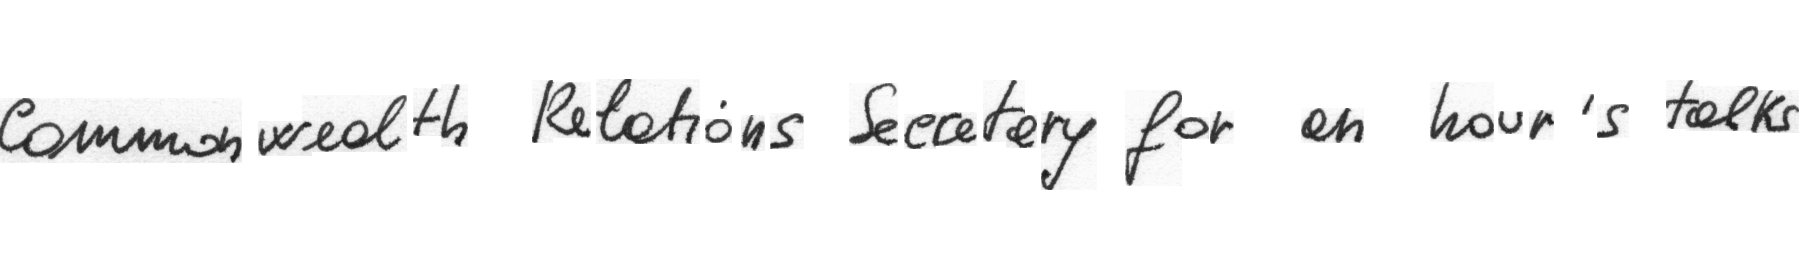 Commonwealth Relations Secretary for an hour's talks